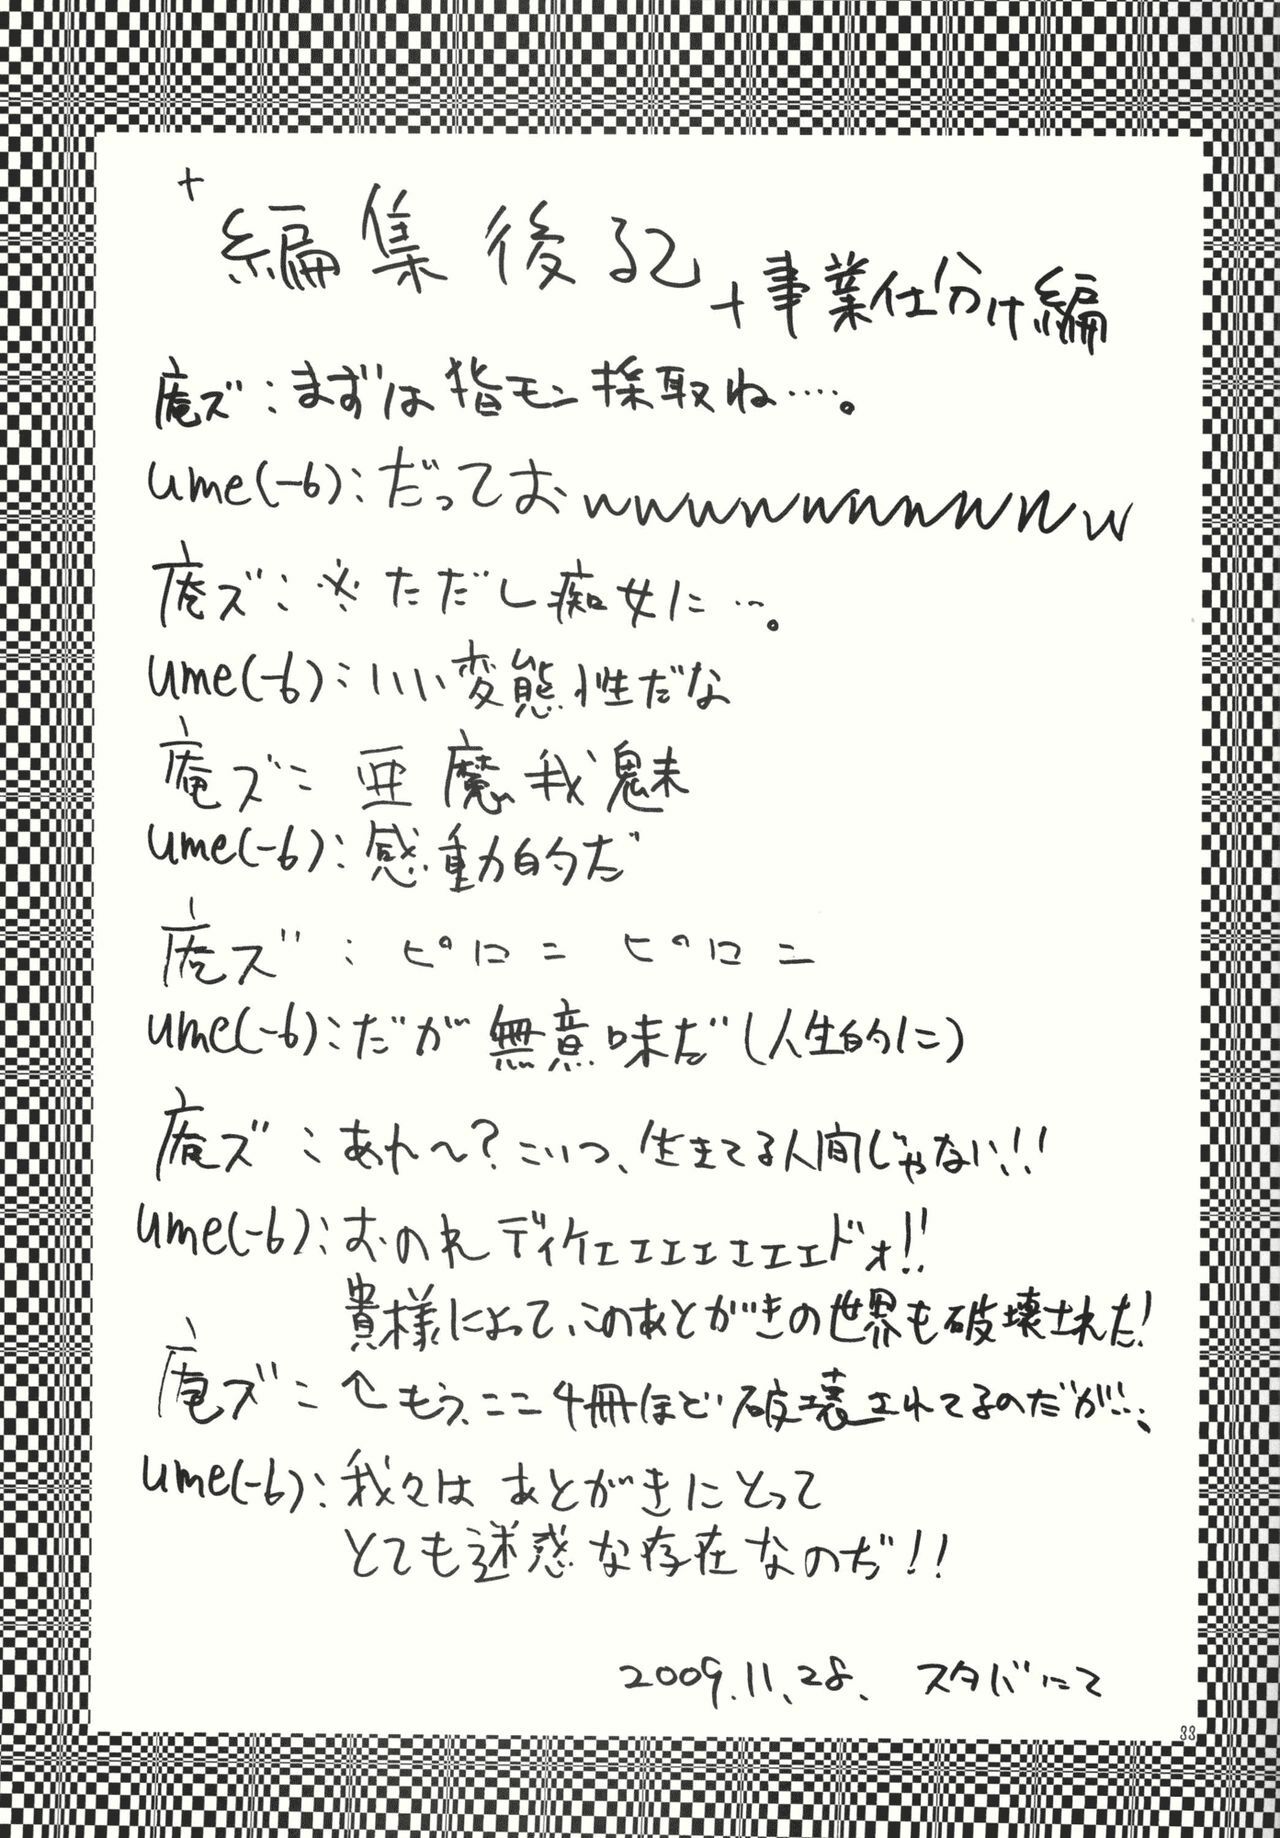 +編集後記+事業仕分け編
庵ズ：まずは指モン採取ね‥‥。
ume(-6)：だっておwwwwwwwwwww
庵ズ：※ただし痴女に…。
ume(-6)：いい変態性だな
庵ズ：亜魔我魅
ume(-6)：感動的だ
庵ズ：ピロニ ピロニ
ume(-6)：だが無意味だ(人生的に)
庵ズ：あれ〜？こいつ、生きてる人間じゃない！！
ume(-6)：おのれディケェェェェェェェドォ!!
貴様によって、このあとがきの世界も破壊された！
庵ズ：↑もう、ここ4冊ほど破壊されてるのだが…。
ume(-6)：我々はあとがきにとって
とても迷惑な存在なのぢ！！
2009.11.28. スタバにて
33